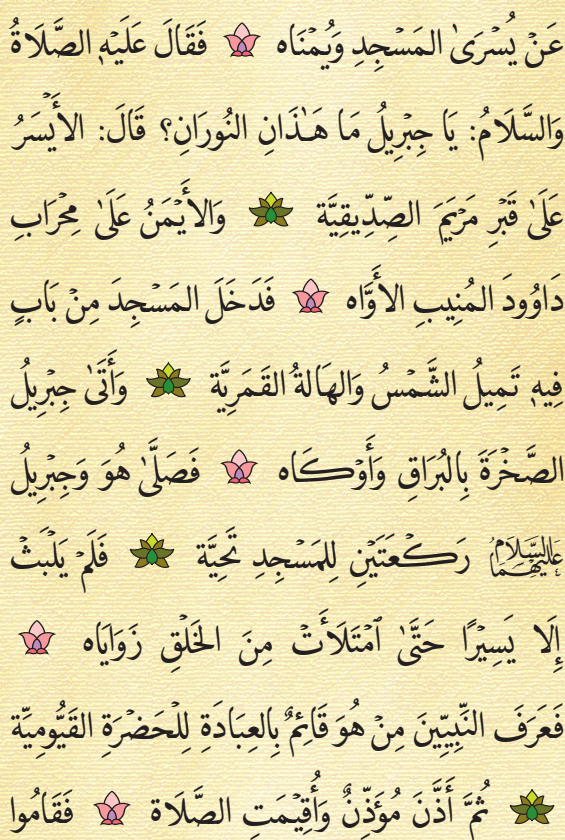 عَنْ يُسْرَىٰ المَسْجِدِ وَيُمْنَاه فَقَالَ عَلَيْهِ الصَّلَاةُ
وَالسَّلَامُ: يَا جِبْرِيلُ مَا هَـٰذَانِ النُورَانِ؟ قَالَ: الأَيْسَرُ
عَلَىٰ قَبْرِ مَرْيَمَ الصِّدِّيقِيَّة وَالأَيْمَنُ عَلَىٰ مِحْرَابِ
دَاوُودَ المُنِيبِ الأَوَّاه فَدَخَلَ المَسْجِدَ مِنْ بَابٍ
فِيهِ تَمِيلُ الشَّمْسُ وَالهَالَةُ القَمَرِيَّة وَأَتَىٰ جِبْرِيلُ
الصَّخْرَةَ بِالبُرَاقِ وَأَوْكَاه فَصَلَّىٰ هُوَ وَجِبْرِيلُ
عَلَيْهِمَا السَّلَامُ رَكْعَتَيْنِ لِلمَسْجِدِ تَحِيَّة فَلَمْ يَلْبَثْ
إِلَا يَسِيْرًا حَتَّىٰ ٱمْتَلَأَتْ مِنَ الخَلْقِ زَوَايَاه
فَعَرَفَ النَّبِيِّينَ مِنْ هُوَ قَائِمٌ بِالعِبَادَةِ لِلْحَضْرَةِ القَيُّومِيَّة
ثُمَّ أَذَّنَ مُؤَذِّنٌ وَأُقِيْمَتِ الصَّلَاة فَقَامُوا